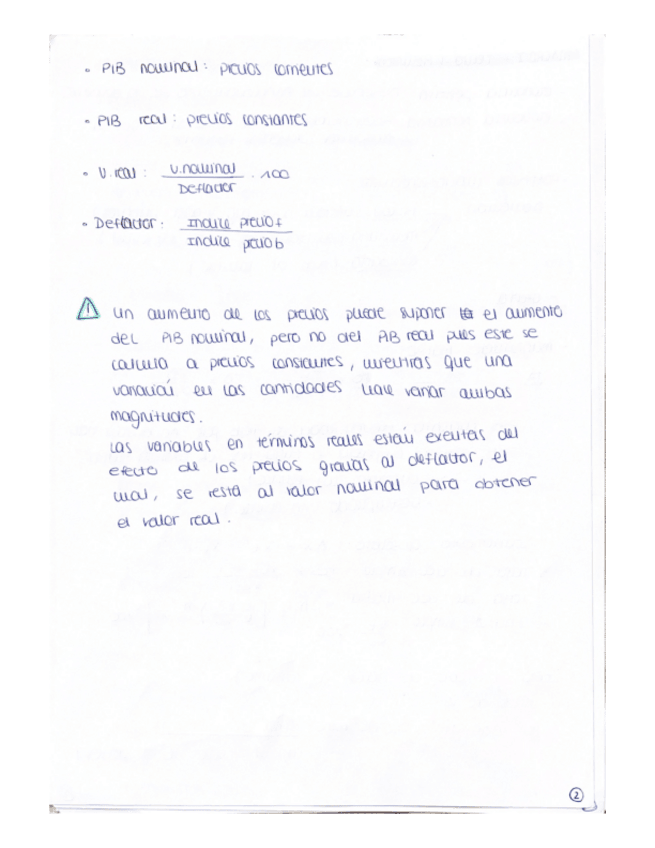 • PIB nominal: precios corrientes
• PIB real: precios constantes
• V. real: V. nominal / Deflactor · 100
• Deflactor: Indice precio t / Indice precio b
⚠ un aumento de los precios puede suponer el aumento
del PIB nominal, pero no del PIB real pues este se
calcula a precios constantes, mientras que una
variación en las cantidades hace variar ambas
magnitudes.
Las variables en términos reales están exentas del
efecto de los precios gracias al deflactor, el
cual, se resta al valor nominal para obtener
el valor real.
2